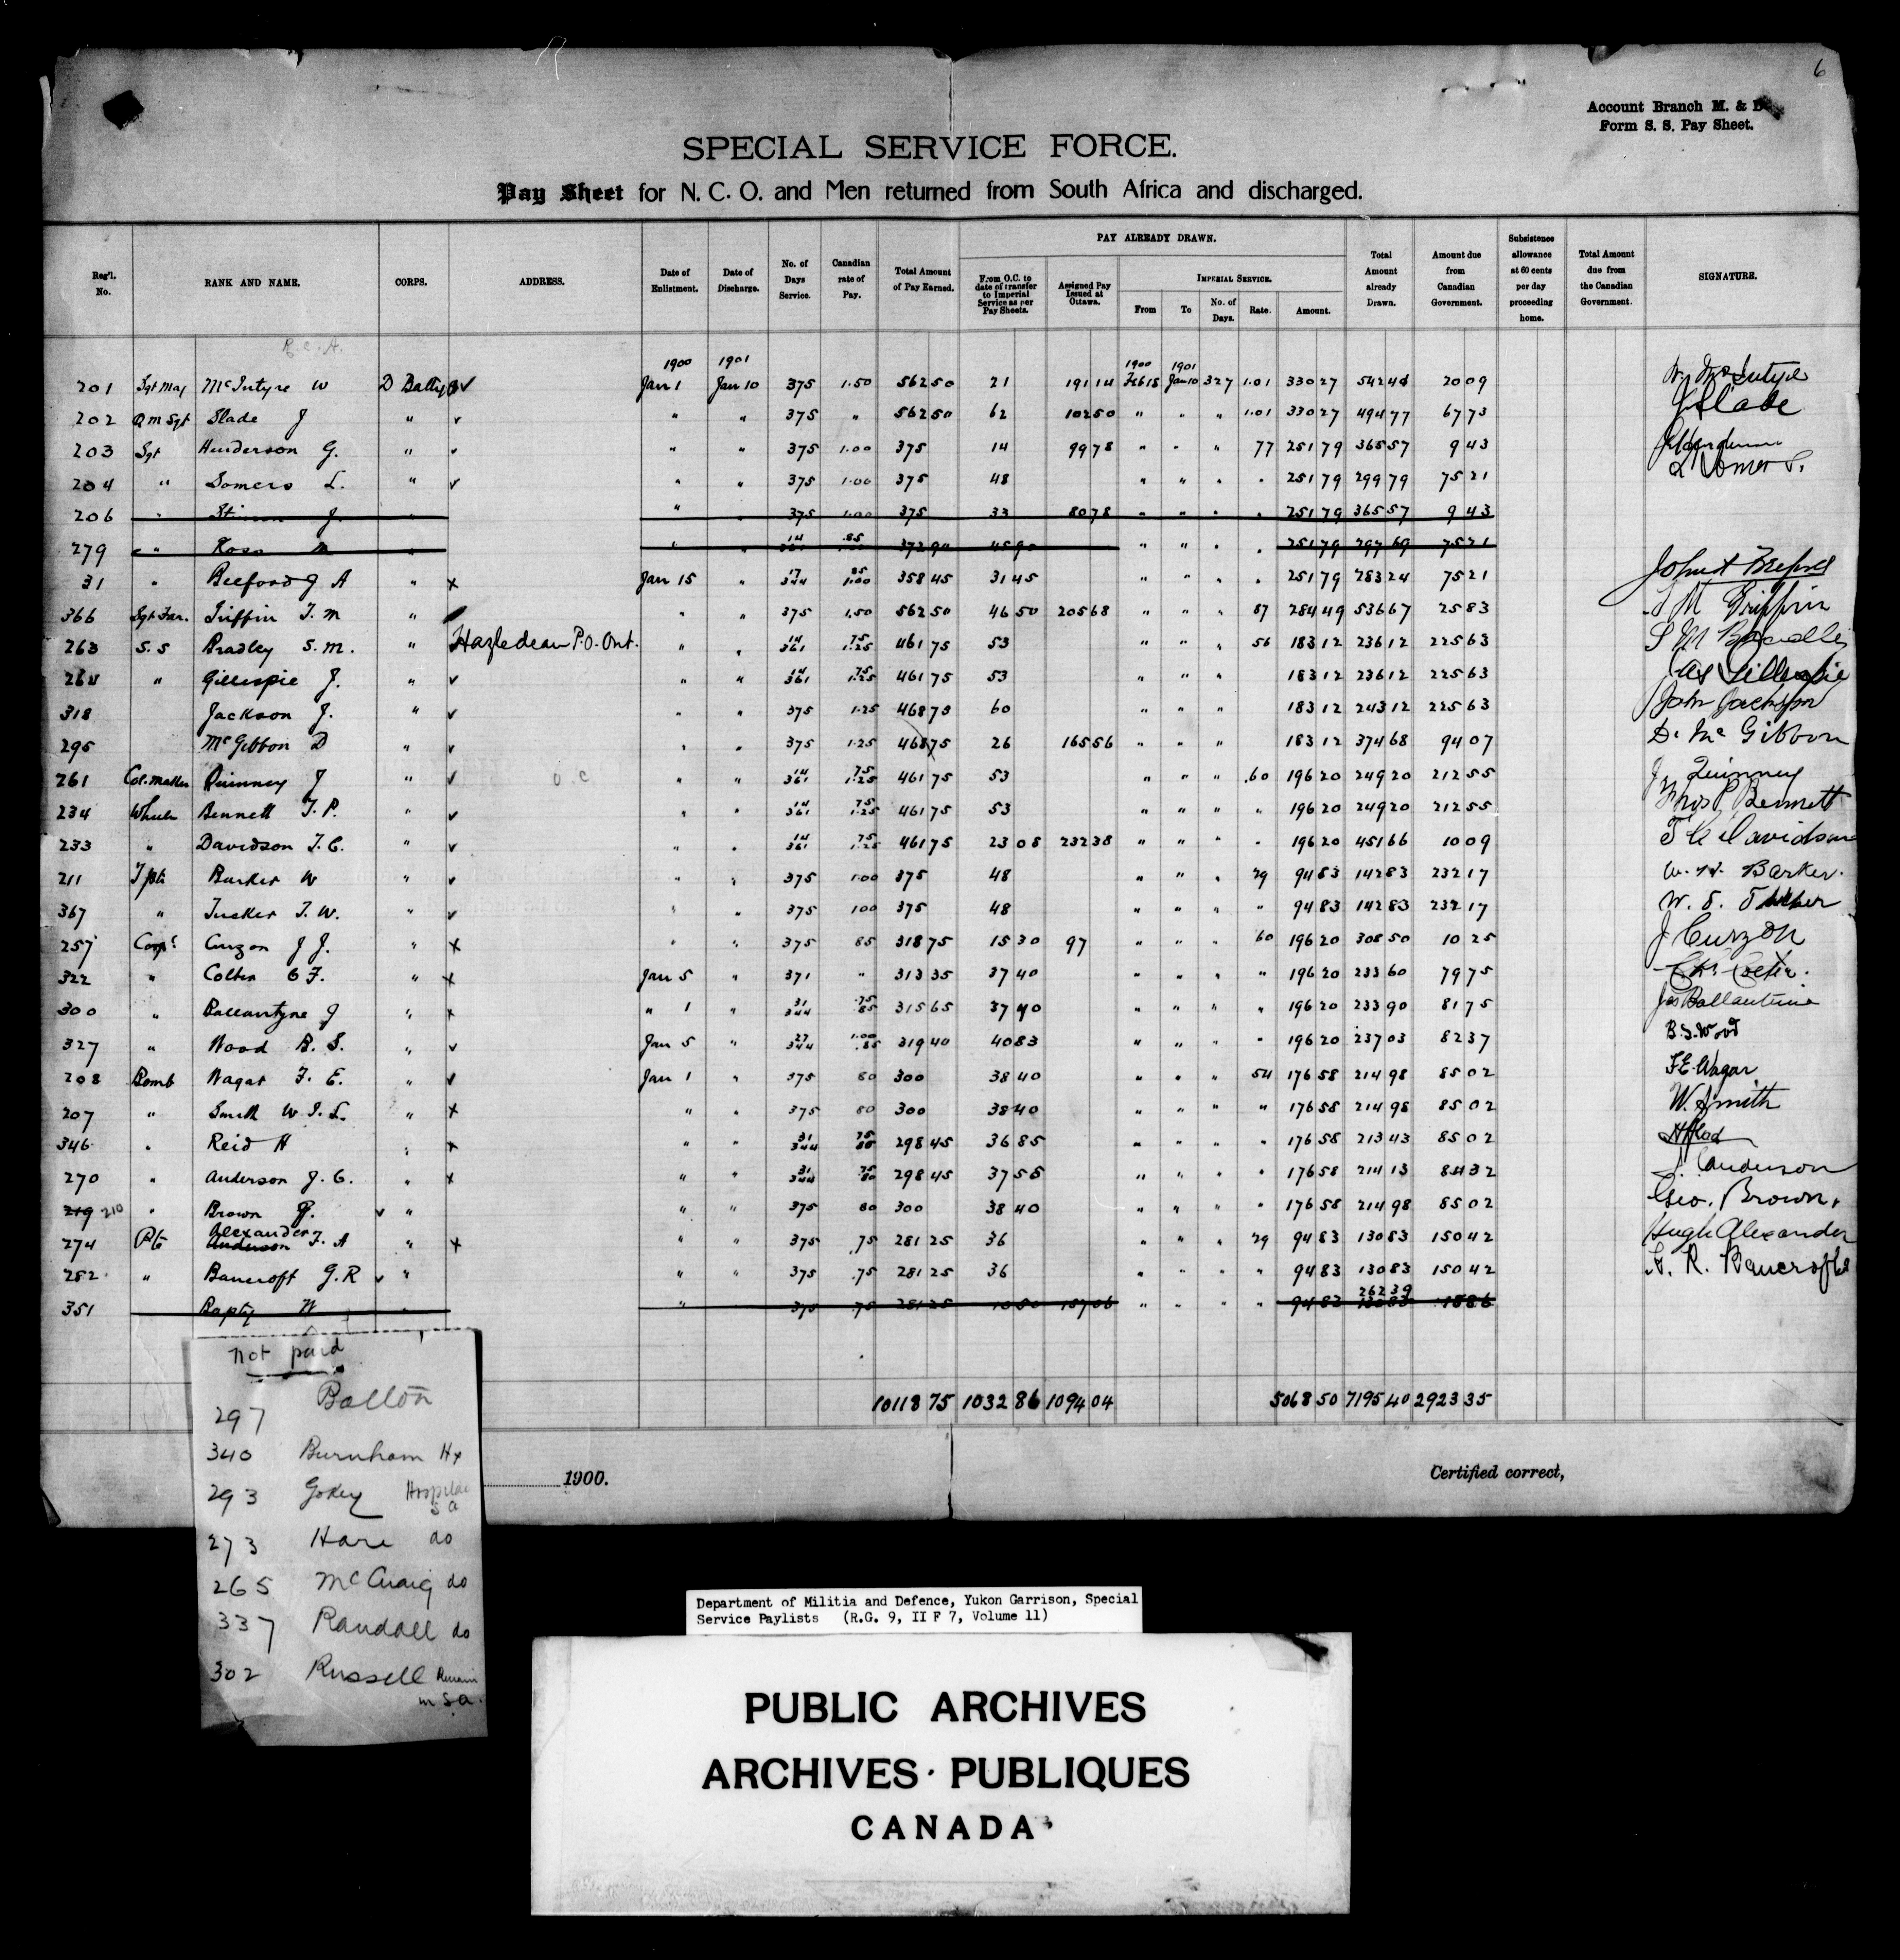 6
Account Branch M. & D.
Form S. S. Pay Sheet.
SPECIAL SERVICE FORCE.
Pay Sheet for N. C. O. and Men returned from South Africa and discharged.
Reg'l. No. RANK AND NAME. CORPS. ADDRESS. Date of Enlistment. Date of Discharge. No. of Days Service. Canadian rate of Pay. Total Amount of Pay Earned. PAY ALREADY DRAWN. From O.C. to date of transfer to Imperial Service as per Pay Sheets. Assigned Pay Issued at Ottawa. IMPERIAL SERVICE. From To No. of Days. Rate. Amount. Total Amount already Drawn. Amount due from Canadian Government. Subsistence allowance at 60 cents per day proceeding home. Total Amount due from the Canadian Government. SIGNATURE.
R.C.A.
1900 1901 1900 1901
201 Sgt Maj McIntyre W D Batty Jan 1 Jan 10 375 1.50 562 50 21 191 14 Feb 18 Jan 10 327 1.01 330 27 542 41 20 09 W. McIntyre
202 Q M Sgt Slade J " " " 375 " 562 50 62 102 50 " " " 1.01 330 27 494 77 67 73 J Slade
203 Sgt Henderson G. " " " 375 1.00 375 14 99 78 " " " 77 251 79 365 57 9 43
204 " Somers L. " " " 375 1.00 375 48 " " " " 251 79 299 79 75 21 L Somers
206 " Stinson J. " " " 375 1.00 375 33 80 78 " " " " 251 79 365 57 9 43
279 " Ross M " " " 14 361 .85 1.00 372 90 45 90 " " " " 251 79 297 69 75 21
31 " Beeford J A " x Jan 15 " 17 344 85 1.00 358 45 31 45 " " " " 251 79 283 24 75 21
366 Sgt Far. Griffin T. M " " " 375 1.50 562 50 46 50 205 68 " " " 87 284 49 536 67 25 83 T M Griffin
263 S.S Bradley S. M. " Hazledean P.O. Ont. " " 14 361 75 1.25 461 75 53 " " " 56 183 12 236 12 225 63 S M Bradley
264 " Gillespie J. " " " 14 361 75 1.25 461 75 53 " " " 183 12 236 12 225 63 Jas Gillespie
318 Jackson J. " " " 375 1.25 468 75 60 " " " 183 12 243 12 225 63 John Jackson
295 McGibbon D " " " 375 1.25 468 75 26 165 56 " " " 183 12 374 68 94 07 D. McGibbon
261 Col. maker Quinney J " O.C " " 14 361 75 1.25 461 75 53 " " " .60 196 20 249 20 212 55 J Quinney
234 Wheeler Bennett T. P. " " " 14 361 75 1.25 461 75 53 " " " " 196 20 249 20 212 55 Thos P Bennett
233 " Davidson T. C. " " " 14 361 75 1.25 461 75 23 08 232 38 " " " " 196 20 451 66 10 09 T C Davidson
211 Tptr Barker W " " " 375 1.00 375 48 " " " 29 94 83 142 83 232 17 W. H. Barker.
367 " Tucker T. W. " " " 375 1.00 375 48 " " " " 94 83 142 83 232 17
257 Corpl Curzon J J. " x " " 375 85 318 75 15 30 97 " " " 60 196 20 308 50 10 25 J Curzon
322 " Colter C F. " x Jan 5 " 371 " 313 35 37 40 " " " " 196 20 233 60 79 75
300 " Ballantyne J " x " 1 " 31 344 .75 85 315 65 37 40 " " " " 196 20 233 90 81 75 Jas Ballantine
327 " Wood B. S. " Jan 5 " 27 344 1.00 .85 319 40 40 83 " " " " 196 20 237 03 82 37 B. S. Wood
208 Bomb Wagar F. E. " Jan 1 " 375 80 300 38 40 " " " 54 176 58 214 98 85 02 F. E. Wagar
207 " Smith W. J. L. " x " " 375 80 300 38 40 " " " " 176 58 214 98 85 02 W. Smith
346 " Reid H " x " " 31 344 75 80 298 45 36 85 " " " " 176 58 213 43 85 02
270 " Anderson J. C. " x " " 31 344 75 80 298 45 37 55 " " " " 176 58 214 13 84 32 J. Canderson
219 210 " Brown G. " " " 375 80 300 38 40 " " " " 176 58 214 98 85 02 Geo. Brown.
274 Pte Alexander Anderson F. A " x " " 375 .75 281 25 36 " " " 29 94 83 130 83 150 42 Hugh Alexander
282 " Bancroft G. R " " " 375 .75 281 25 36 " " " " 94 83 130 83 150 42 G. R. Bancroft
351 " Bapty W " " " 375 .75 281 25 10 50 157 06 " " " " 94 83 262 39 130 83 18 86
10118 75 1032 86 1094 04 5068 50 7195 40 2923 35
1900. Certified correct,
not paid
297 Balton
340 Burnham Hx
293 Gokey Hospital S a
273 Hare do
265 McCraig do
337 Randall do
302 Russell Remain in S.a.
Department of Militia and Defence, Yukon Garrison, Special
Service Paylists (R.G. 9, II F 7, Volume 11)
PUBLIC ARCHIVES
ARCHIVES PUBLIQUES
CANADA